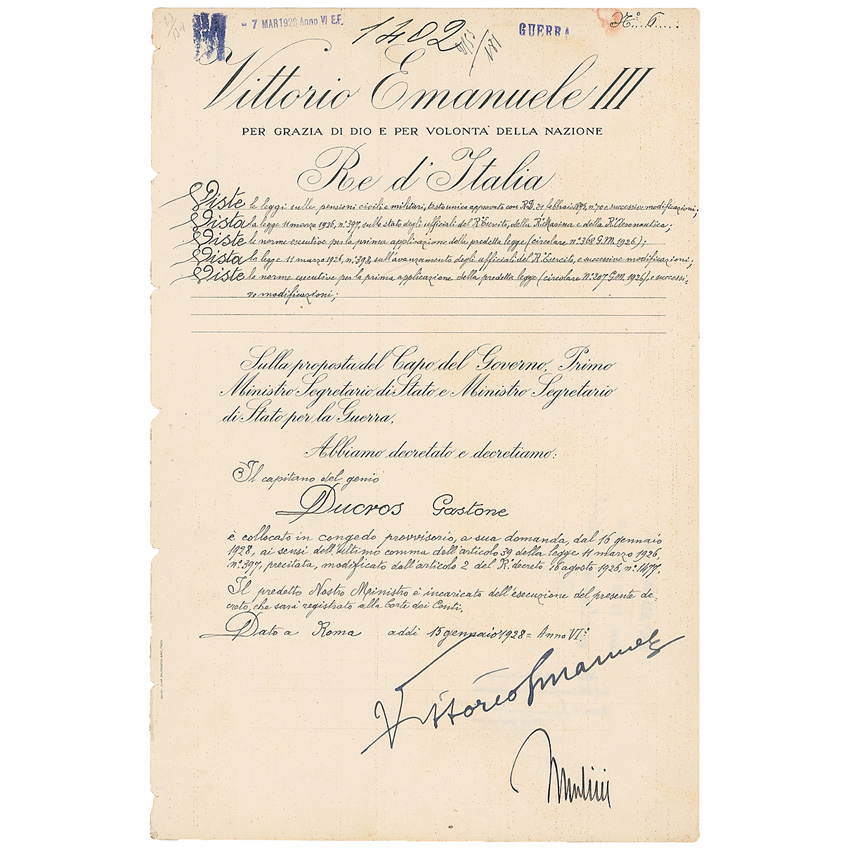 - 7 MAR 1928 Anno VI E.F.
1402
GUERRA
N° 6
Vittorio Emanuele III
PER GRAZIA DI DIO E PER VOLONTA' DELLA NAZIONE
Re d'Italia
Viste le leggi sulle pensioni civili e militari, testo unico approvato con R.D. 21 febbraio 1895, n° 70 e successive modificazioni;
Vista la legge 11 marzo 1926, n° 397, sullo stato degli ufficiali del R° Esercito, della R° Marina e della R° Aeronautica;
Viste le norme esecutive per la prima applicazione della predetta legge (circolare n° 368 G.M. 1926);
Vista la legge 11 marzo 1926, n° 398, sull'avanzamento degli ufficiali del R° Esercito, e successive modificazioni;
Viste le norme esecutive per la prima applicazione della predetta legge (circolare n° 307 G.M. 1926), e successi-
ve modificazioni;
Sulla proposta del Capo del Governo, Primo
Ministro Segretario di Stato e Ministro Segretario
di Stato per la Guerra,
Abbiamo decretato e decretiamo:
Il capitano del genio
Ducros Gastone
è collocato in congedo provvisorio, a sua domanda, dal 16 gennaio
1928, ai sensi dell'ultimo comma dell'articolo 39 della legge 11 marzo 1926,
n° 397, precitata, modificato dall'articolo 2 del R° decreto 16 agosto 1926, n° 1477.
Il predetto Nostro Ministro è incaricato dell'esecuzione del presente de-
creto, che sarà registrato alla Corte dei Conti.
Dato a Roma addì 15 gennaio 1928 = Anno VI°
Vittorio Emanuele
Mussolini